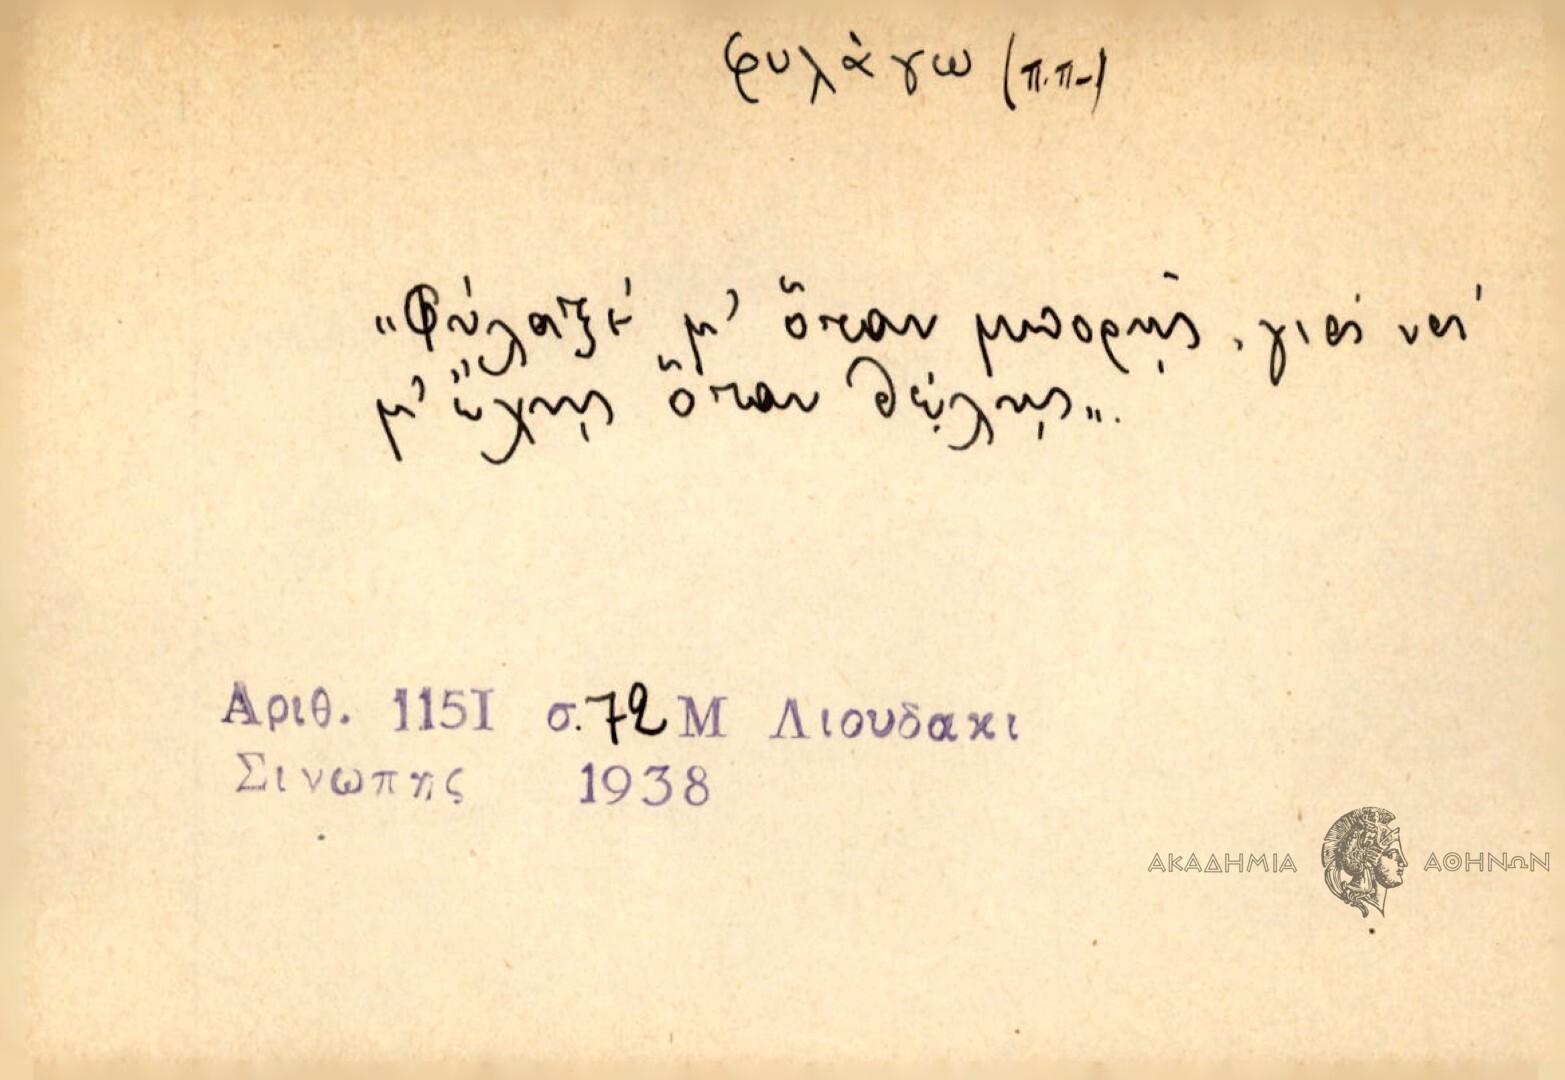 φυλάγω (π.π.)
„Φύλαξέ μ' ὅταν μπορῇς, γιὰ νά
μ' ἔχῃς ὅταν θέλῃς„.
Αριθ. 1151 σ.72 Μ Λιουδακι
Σινωπης 1938
ΑΚΑΔΗΜΙΑ ΑΘΗΝΩΝ